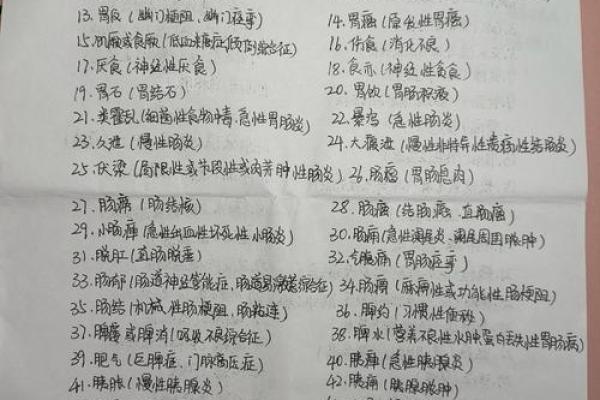 13.胃反(幽门梗阻、幽门痉挛) 14.胃癌(原发性胃癌)
15.肌厥或食厥(低血糖症、倾倒综合征) 16.伤食(消化不良)
17.厌食(神经性厌食) 18.食亦(神经性贪食)
19.胃石(胃结石) 20.胃饮(胃肠积液)
21.类霍乱(细菌性食物中毒.急性胃肠炎) 22.暴泻(急性肠炎)
23.久泄(慢性肠炎) 24.大瘕泄(慢性非特异性溃疡性结肠炎)
25.伏梁(局限性或节段性或肉芽肿性肠炎) 26.肠瘤(胃肠息肉)
27.肠痨(肠结核) 28.肠癌(结肠癌.直肠癌)
29.小肠痹(急性出血性坏死性小肠炎) 30.肠痈(急性阑尾炎、阑尾周围脓肿)
31.脱肛(直肠脱垂) 32.腹痛(胃肠痉挛)
33.肠郁(肠道神经官能症,肠道易激综合征) 34.肠痹(麻痹性或功能性肠梗阻)
35.肠结(机械性肠梗阻、肠粘连) 36.脾约(习惯性便秘)
37.脾消(吸收不良综合征) 38.脾水(营养不良性水肿蛋白丢失性胃肠病)
39.肥气(巨脾症、门脉高压症) 40.胰瘅(急性胰腺炎)
41.胰胀(慢性胰腺炎) 42.胰痈(胰腺脓肿)